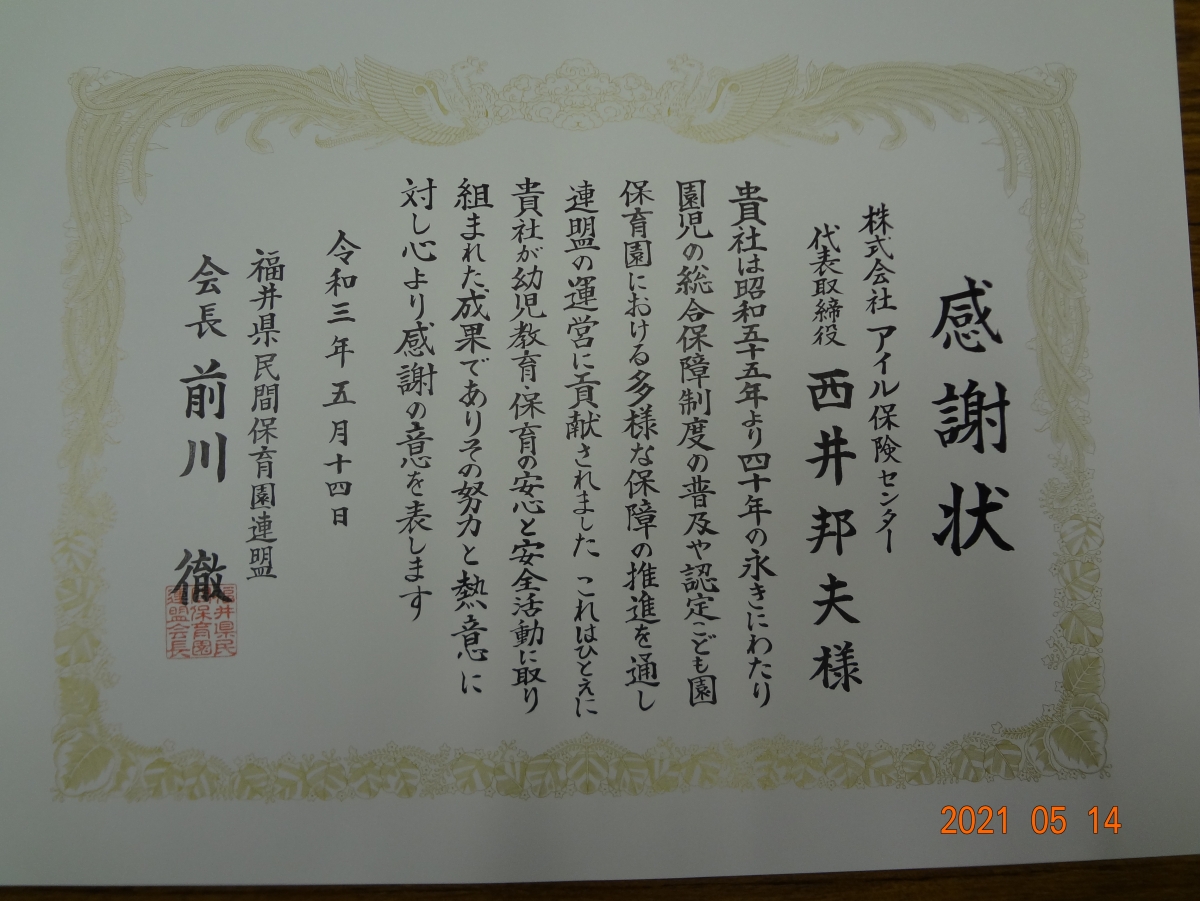 感謝状
株式会社 アイル保険センター
代表取締役 西井邦夫様
貴社は昭和五十五年より四十年の永きにわたり
園児の総合保障制度の普及や認定こども園
保育園における多様な保障の推進を通し
連盟の運営に貢献されました これはひとえに
貴社が幼児教育・保育の安心と安全活動に取り
組まれた成果でありその努力と熱意に
対し心より感謝の意を表します
令和三年五月十四日
福井県民間保育園連盟
会長 前川 徹
福井県民
間保育園
連盟会長
2021 05 14